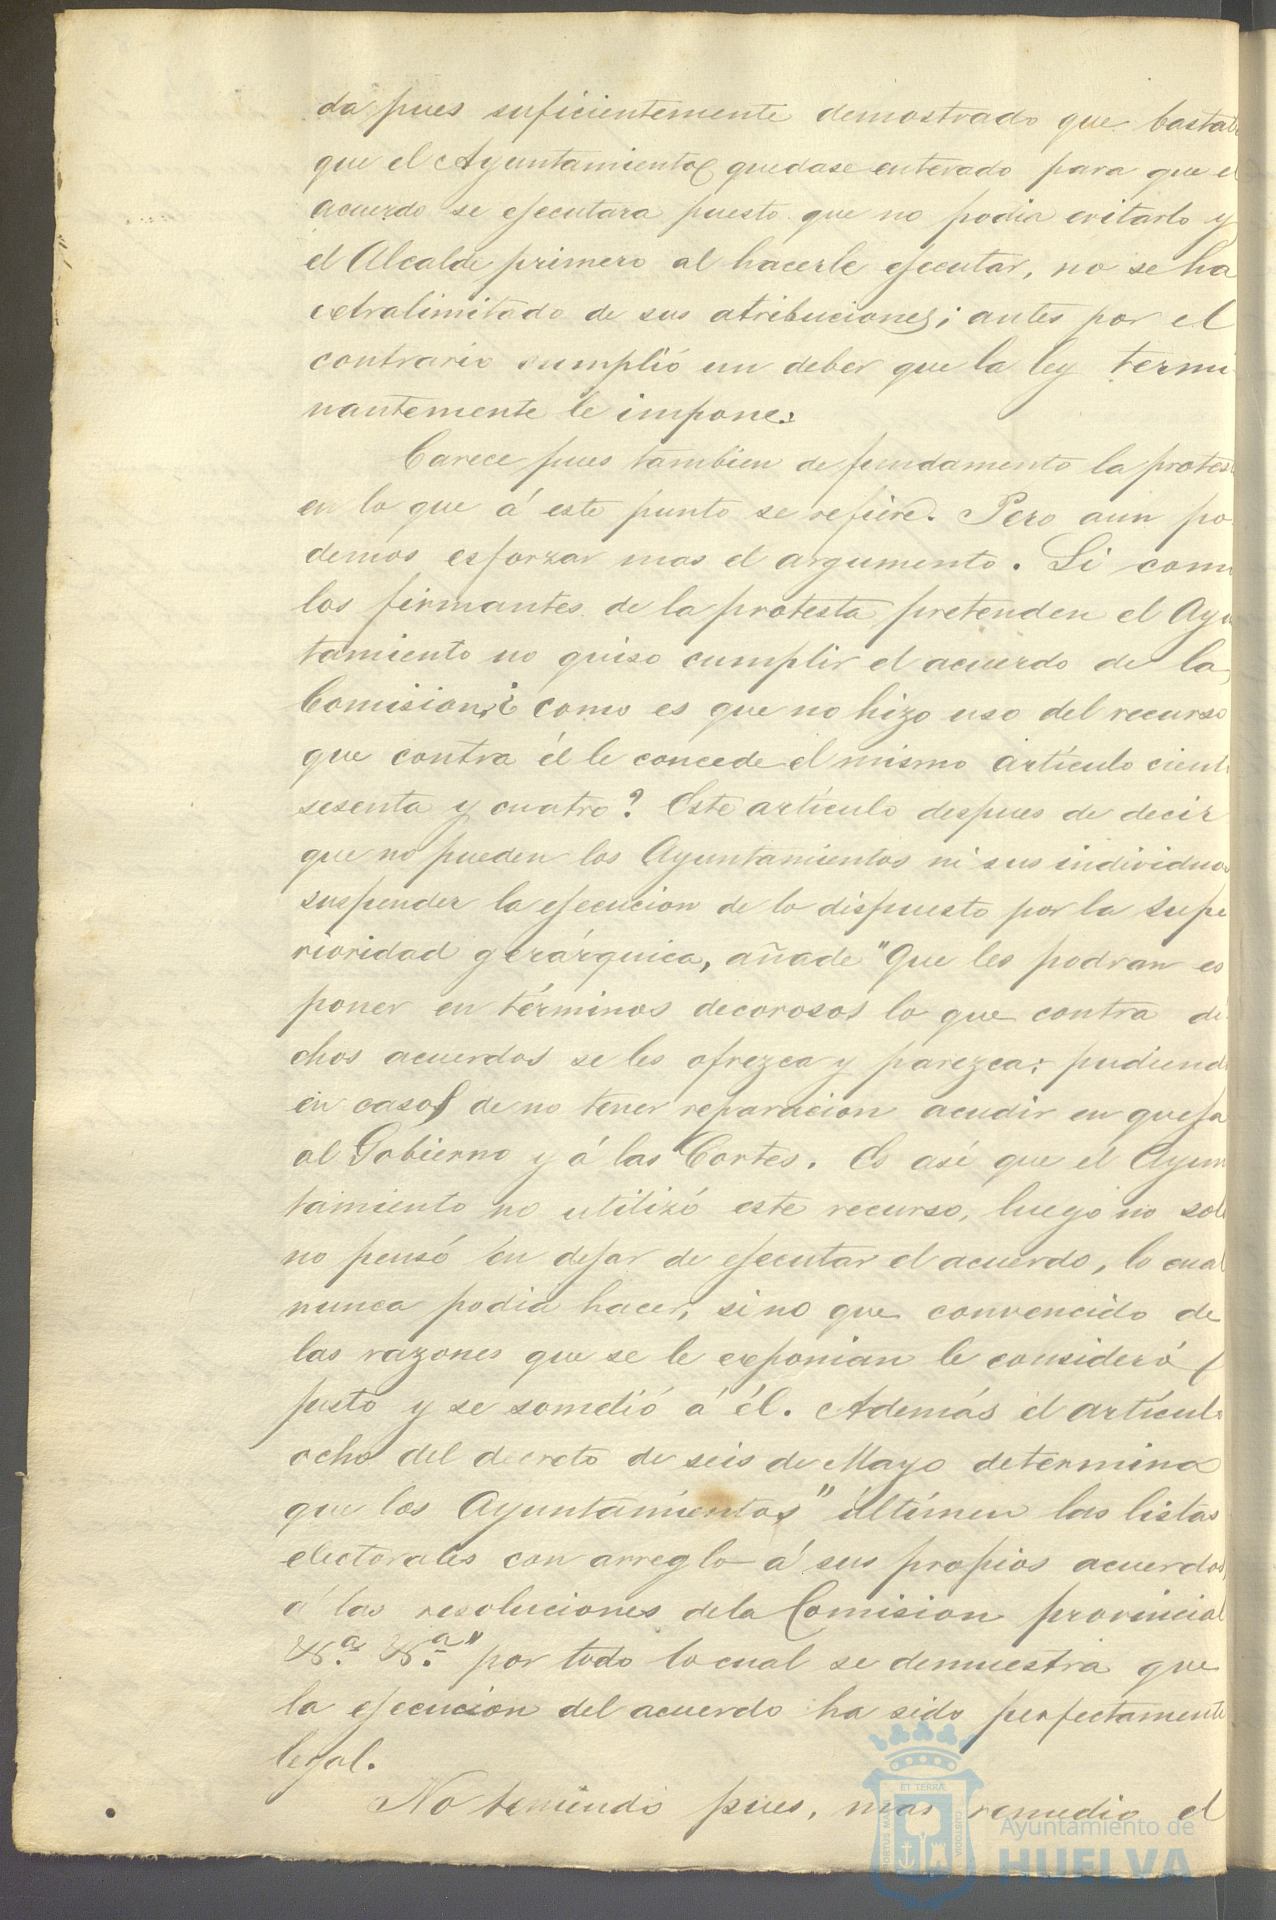 da pues suficientemente demostrado que bastab
que el Ayuntamiento quedase enterado para que el
acuerdo se ejecutara puesto que no podia evitarlo y
el Alcalde primero al hacerle ejecutar, no se ha
extralimitado de sus atribuciones; antes por el
contrario cumplió un deber que la ley termi
nantemente le impone.
Carece pues tambien de fundamento la protes
en lo que á este punto se refiere. Pero aun po
demos esforzar mas el argumento. Si com
los firmantes de la protesta pretenden el Ayu
tamiento no quiso cumplir el acuerdo de la
Comision ¿ como es que no hizo uso del recurso
que contra él le concede el mismo artículo cient
sesenta y cuatro? Este artículo despues de decir
que no pueden los Ayuntamientos ni sus individuos
suspender la ejecucion de lo dispuesto por la supe
rioridad gerárquica, añade "Que les podran es
poner en términos decorosos lo que contra di
chos acuerdos se les ofrezca y parezca; pudiend
en caso de no tener reparacion acudir en queja
al Gobierno y á las Cortes. Es así que el Ayun
tamiento no utilizó este recurso, luego no sol
no pensó en dejar de ejecutar el acuerdo, lo cual
nunca podia hacer, sino que convencido de
las razones que se le exponian le consideró
justo y se sometió á él. Además el artícul
ocho del decreto de seis de Mayo determina
que los Ayuntamientos " últimen las listas
electorales con arreglo á sus propios acuerdos,
á las resoluciones de la Comision provincial
&.ª &.ª" por todo lo cual se demuestra que
la ejecucion del acuerdo ha sido perfectamente
legal.
No teniendo pues, mas remedio el
ET TERRÆ
PORTUS MARIS
CUSTODIA
Ayuntamiento de
HUELVA